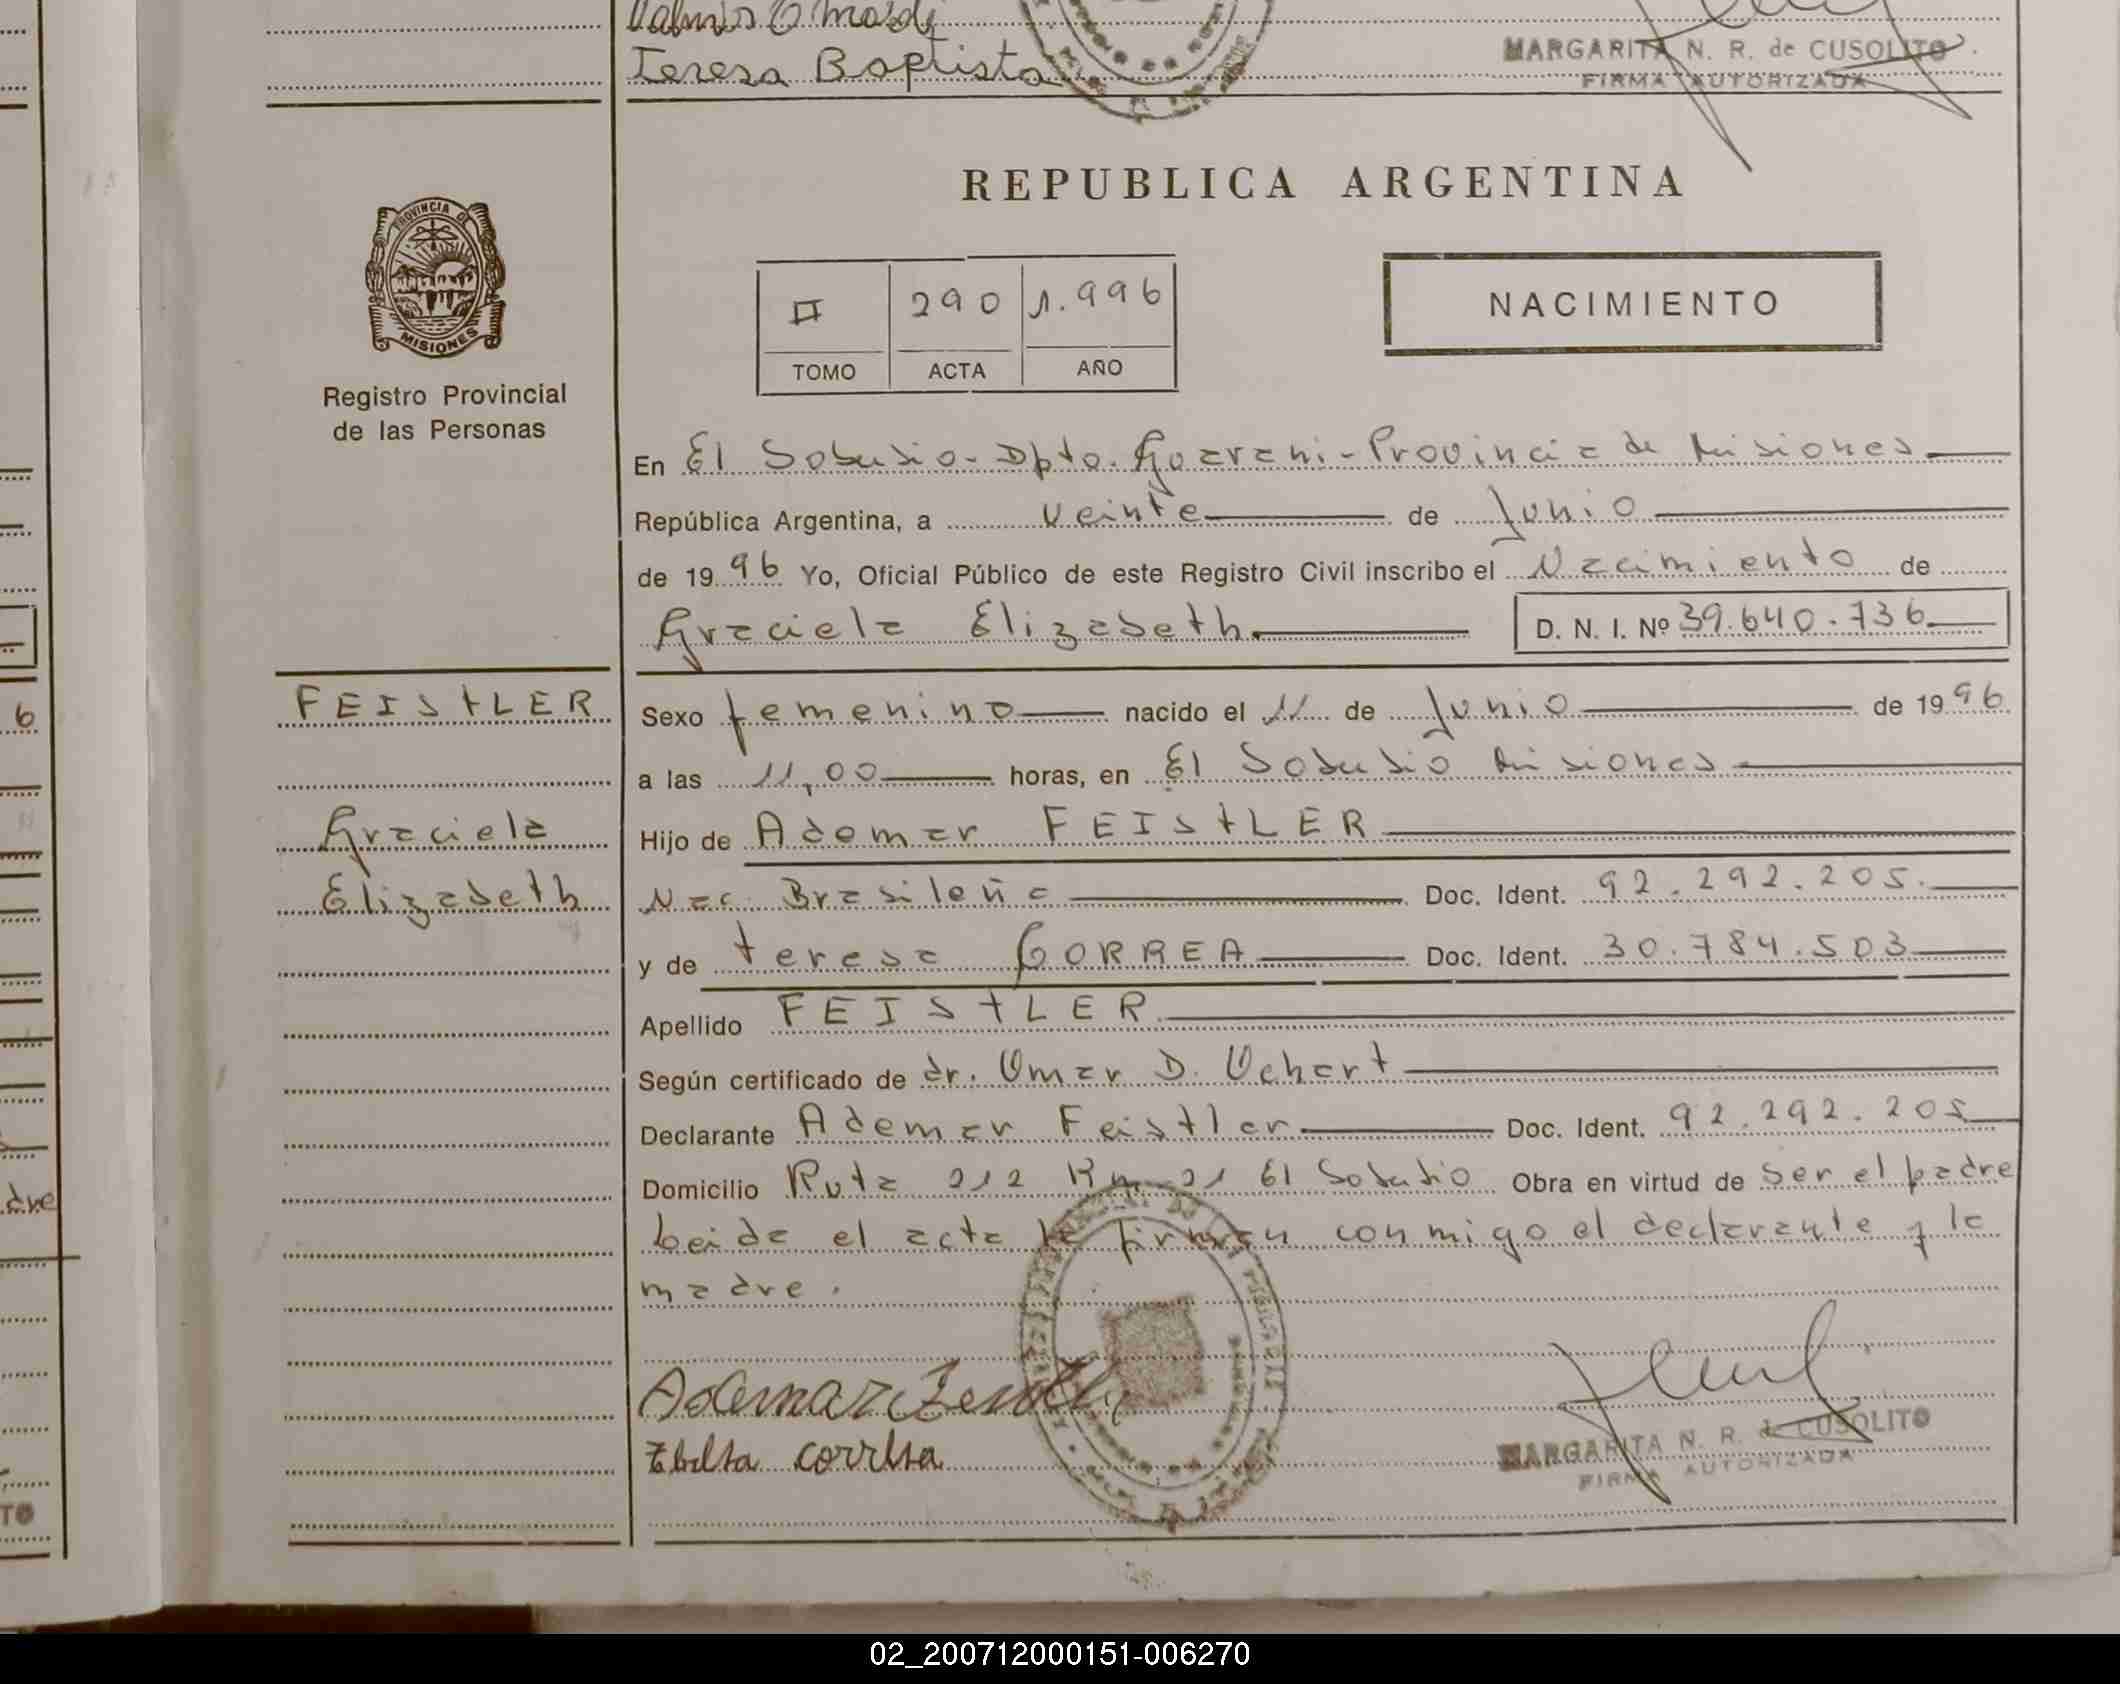 Teresa Baptista
MARGARITA N. R. de CUSOLITO
FIRMA AUTORIZADA
REPUBLICA ARGENTINA
PROVINCIA DE
MISIONES
Registro Provincial
de las Personas
II 290 1.996
TOMO ACTA AÑO
NACIMIENTO
En El Soberbio - Dpto. Guarani - Provincia de Misiones
República Argentina, a veinte de Junio
de 1996 Yo, Oficial Público de este Registro Civil inscribo el Nacimiento de
Graciela Elizabeth D. N. I. Nº 39.640.736
FEIStLER
Graciela
Elizabeth
Sexo femenino nacido el 11 de Junio de 1996
a las 11,00 horas, en El Soberbio Misiones
Hijo de Ademar FEIStLER
Nac. Brasileña Doc. Ident. 92.292.205.
y de teresa CORREA Doc. Ident. 30.784.503
Apellido FEIStLER
Según certificado de dr. Omar D.
Declarante Ademar Feistler Doc. Ident. 92.292.205
Domicilio Ruta 212 Km 21 El Soberbio Obra en virtud de ser el padre
Leida el acta la firman conmigo el declarante y la
madre.
Ademar
correa
MARGARITA N. R. de CUSOLITO
FIRMA AUTORIZADA
6
dre
TO
02_200712000151-006270